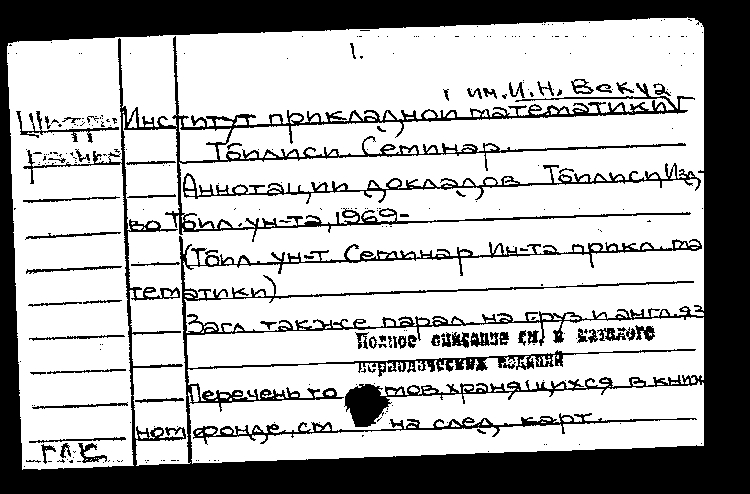 1.
г им. И.Н. Векуа
Шифры Институт прикладной математики
разные Тбилиси. Семинар.
Аннотации докладов Тбилиси, Изд-
во Тбил. ун-та, 1969-
(Тбил. ун-т. Семинар Ин-та прикл. ма
тематики)
Загл. также парал. на груз и англ. яз
Полное описание см. в каталоге
периодических изданий
Перечень то мов, хранящихся в книж
ном фонде, см. на след. карт.
ГЛК